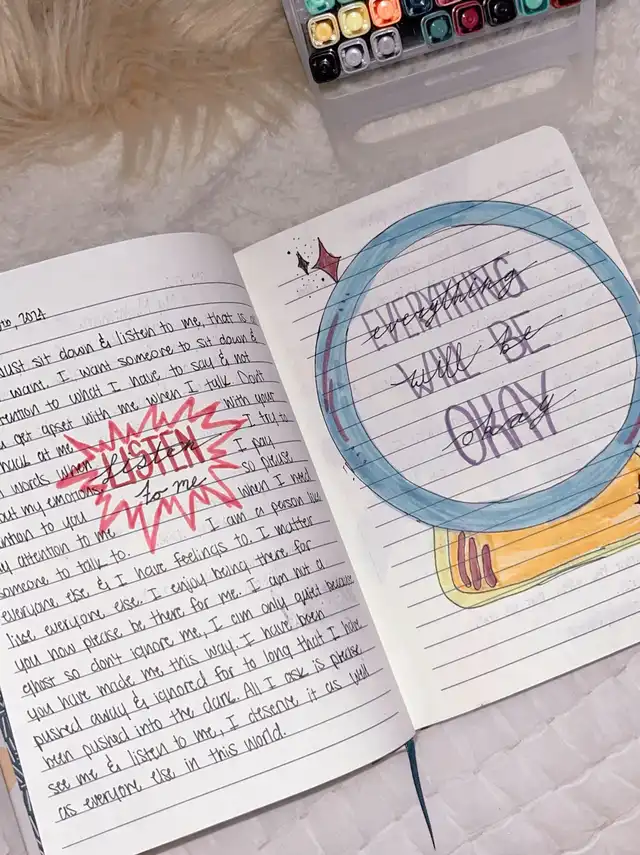 2024
Just sit down & listen to me, that is
want. I want someone to sit down &
attention to what I have to say & not
get apset with me when I talk. Don't
back at me with your
words when I try to
out my emotions I pay
attention to you so please
pay attention to me when I need
someone to talk to. I am a person like
everyone else & I have feelings to. I matter
like everyone else. I enjoy being there for
you now please be there for me. I am not a
ghost so don't ignore me, I am only quiet because
you have made me this way. I have been
pushed away & ignored for to long that I have
been pushed into the dark. All I ask is please
see me & listen to me, I deserve it as well
as everyone else in this world.
LISTEN
listen
to me
EVERYTHING
everything
WILL BE
will be
OKAY
okay